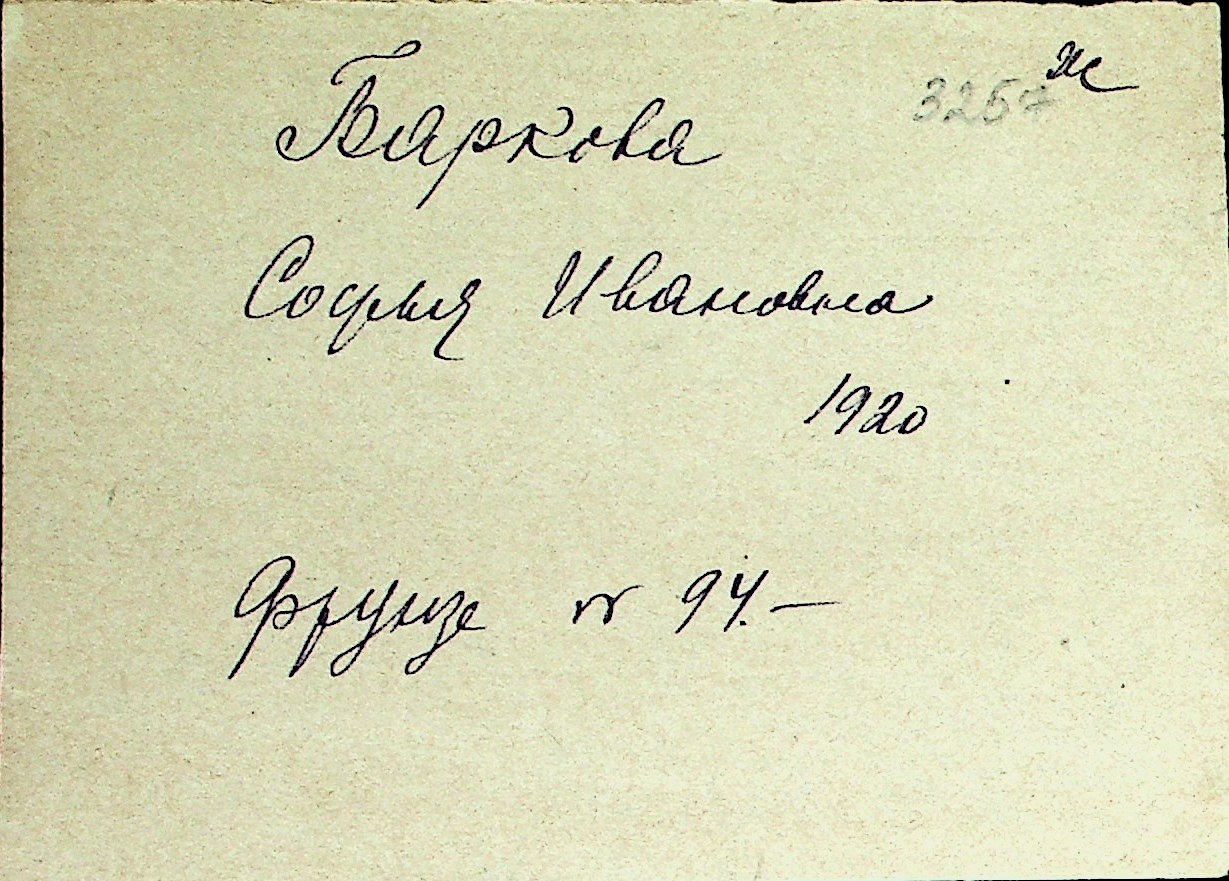 3257 ж
Баркова
Софья Ивановна
1920
Фрунзе № 94.—